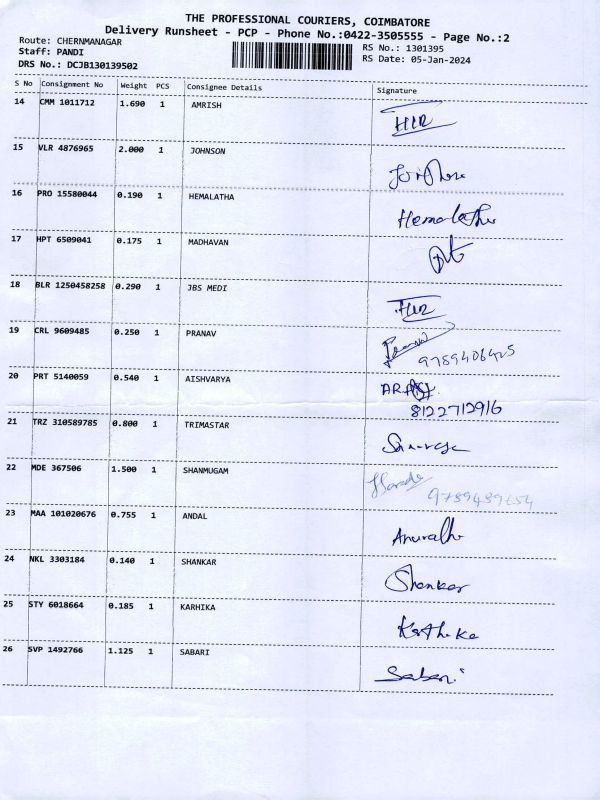 THE PROFESSIONAL COURIERS, COIMBATORE
Delivery Runsheet - PCP - Phone No.:0422-3505555 - Page No.:2
Route: CHERNMANAGAR
Staff: PANDI
DRS No.: DCJB130139502
RS No.: 1301395
RS Date: 05-Jan-2024
S No Consignment No Weight PCS Consignee Details Signature
14 CMM 1011712 1.690 1 AMRISH
15 VLR 4876965 2.000 1 JOHNSON
16 PRO 15580044 0.190 1 HEMALATHA Hemalatha
17 HPT 6509041 0.175 1 MADHAVAN
18 BLR 1250458258 0.290 1 JBS MEDI
19 CRL 9609485 0.250 1 PRANAV
20 PRT 5140059 0.540 1 AISHVARYA
8122712916
21 TRZ 310589785 0.800 1 TRIMASTAR
22 MDE 367506 1.500 1 SHANMUGAM
23 MAA 101020676 0.755 1 ANDAL
24 NKL 3303184 0.140 1 SHANKAR Shankar
25 STY 6018664 0.185 1 KARHIKA
26 SVP 1492766 1.125 1 SABARI Sabari